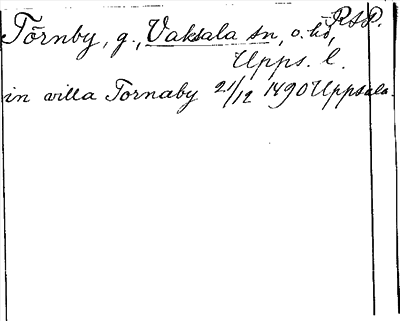 RAP.
Törnby, g., Vaksala sn, o. hd,
Upps. l.
in villa Tornaby 21/12 1490 Uppsala.